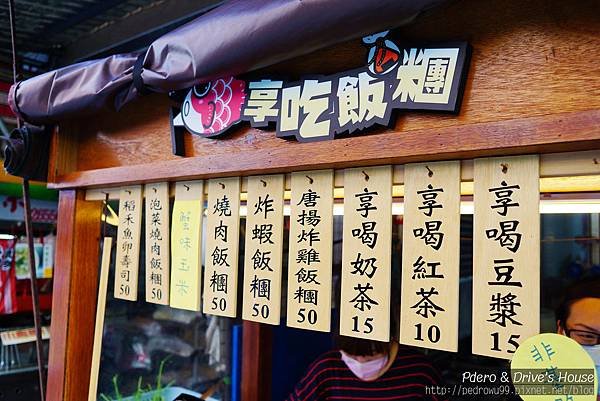 享吃飯糰
稻禾魚卵壽司 50
泡菜燒肉飯糰 50
蟹味玉米
燒肉飯糰 50
炸蝦飯糰 50
唐揚炸雞飯糰 50
享喝奶茶 15
享喝紅茶 10
享喝豆漿 15
非
Pdero & Drive's House
http://pedrowu99.pixnet.net/blog